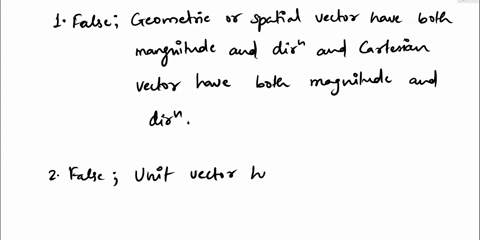 1. False; Geometric or spatial vector have both
mangnitude and dirⁿ and Cartesian
vector have both magnitude and
dirⁿ.
2. False; Unit vector h